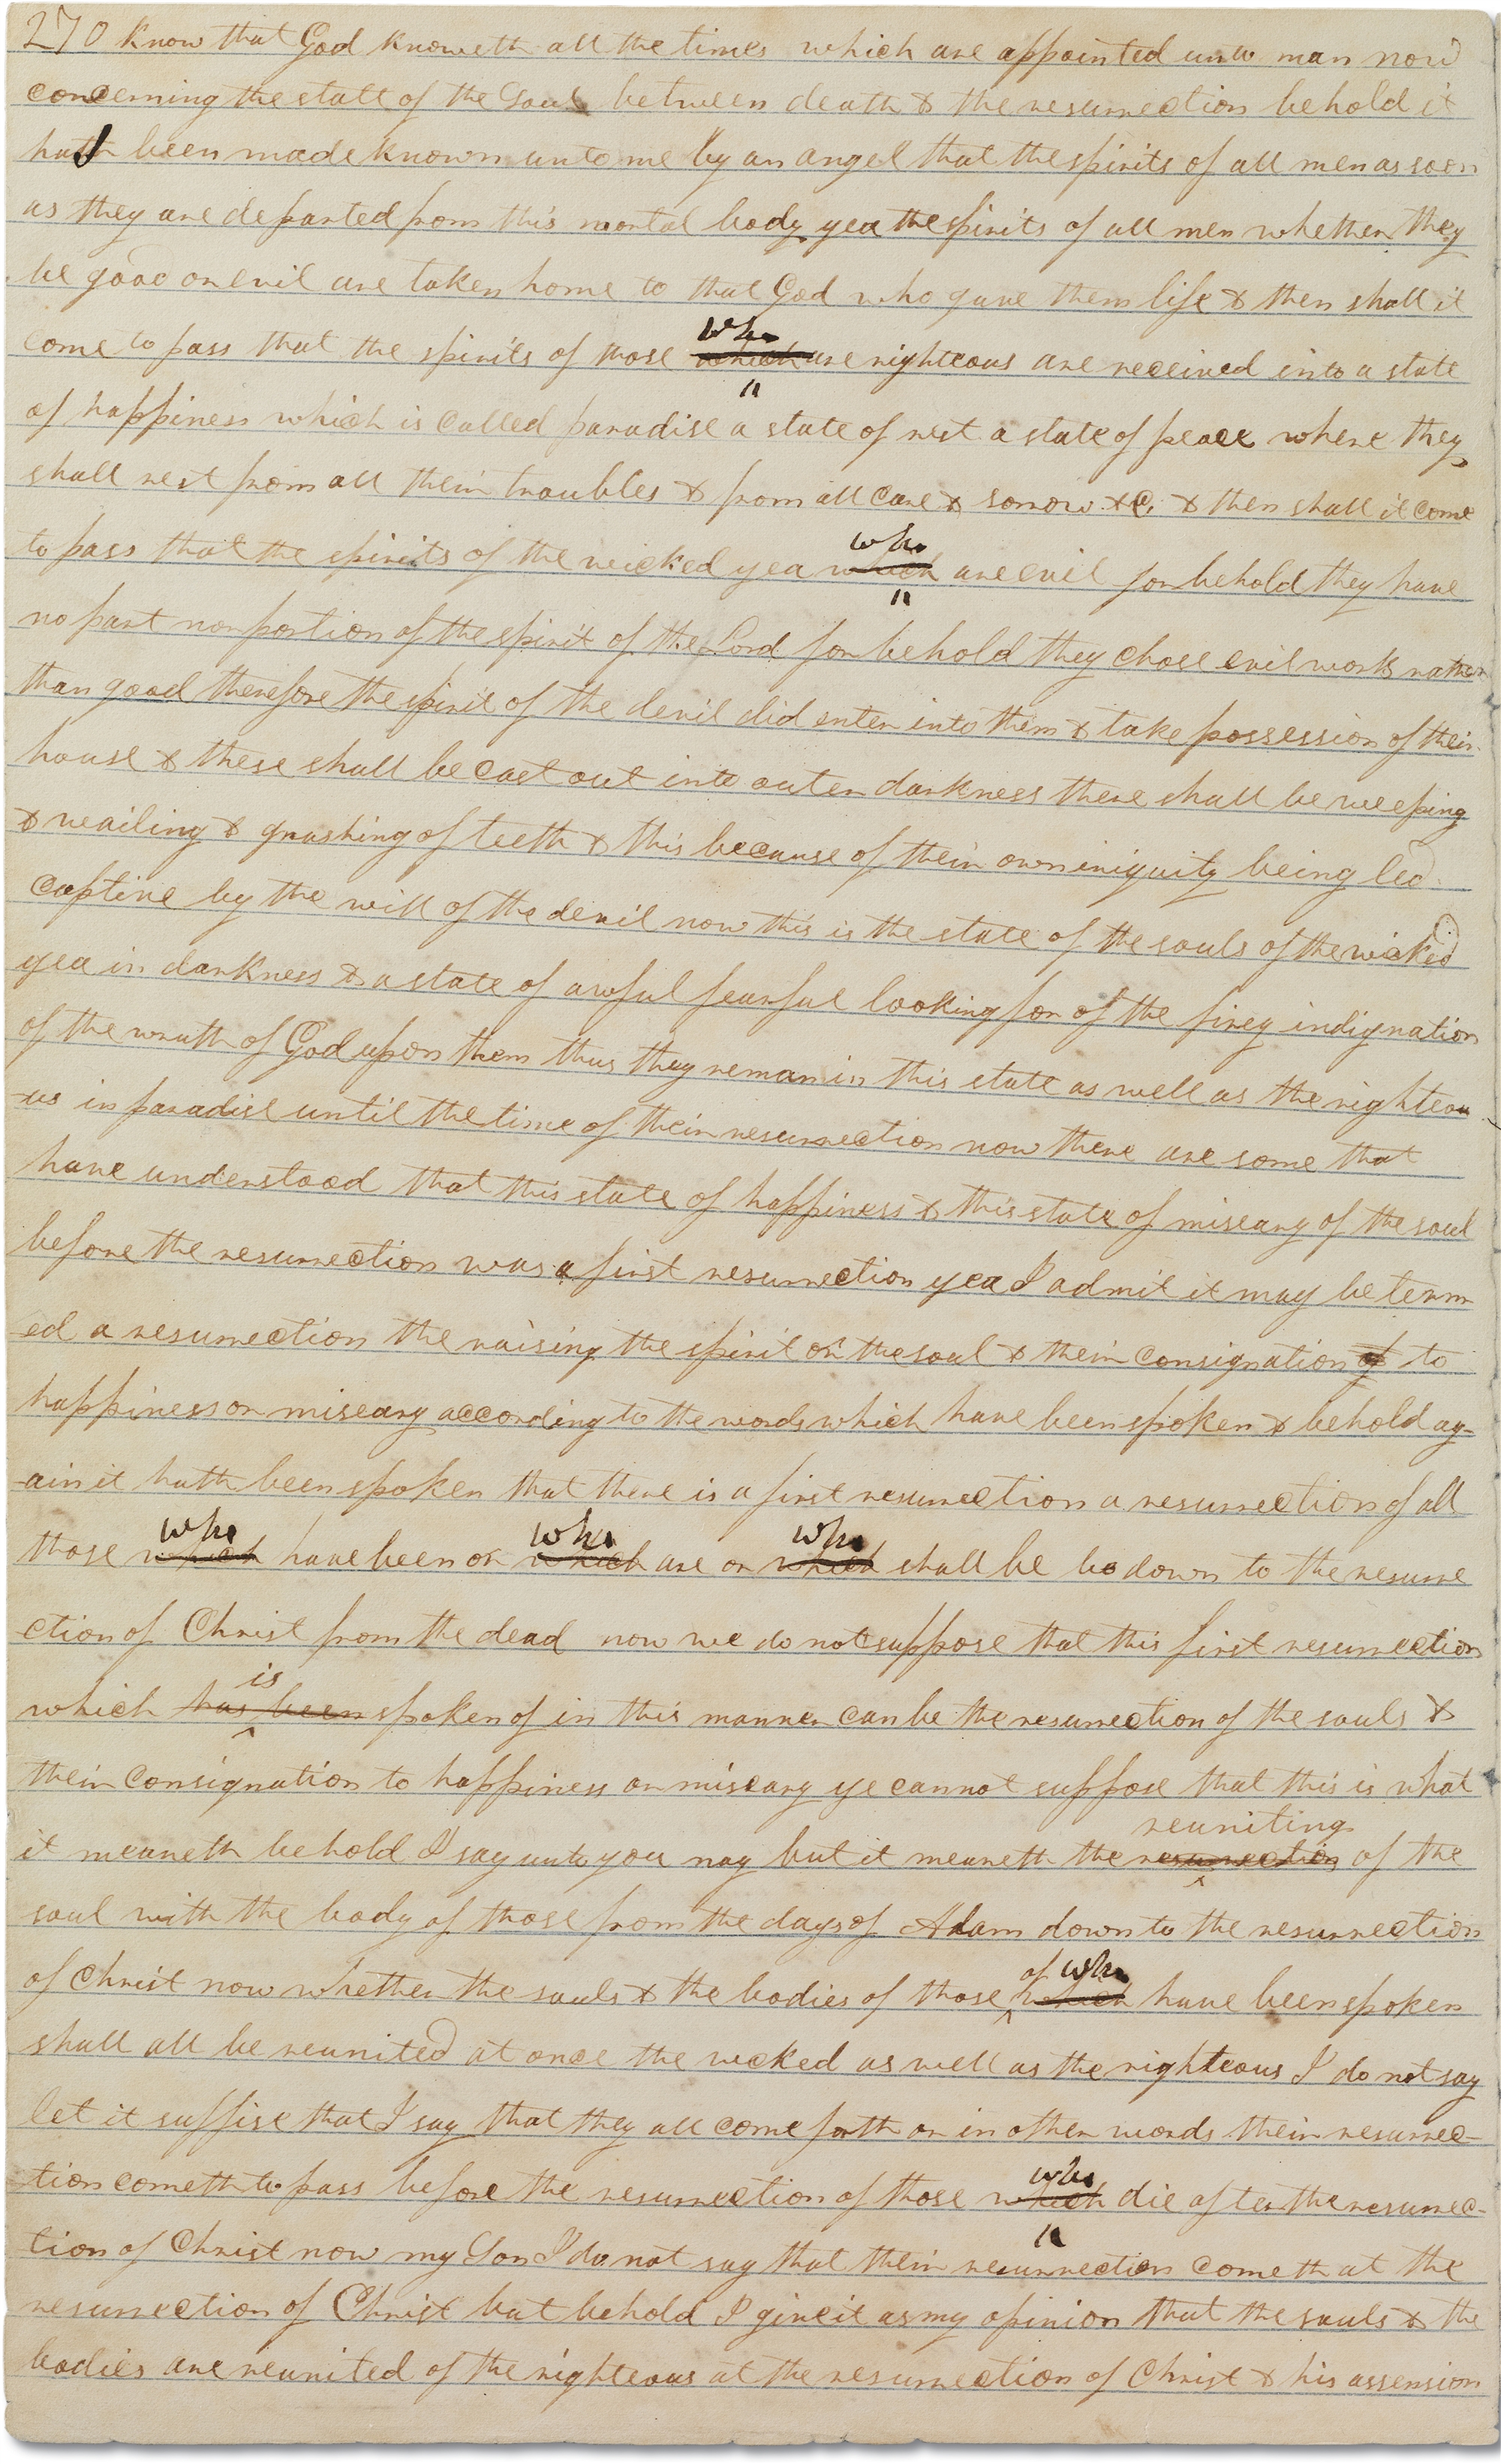 270 know that God knoweth all the times which are appointed unto man now
concerning the state of the Soul between death & the resurrection behold it
hath been made known unto me by an angel that the spirits of all men as soon
as they are departed from this mortal body yea the spirits of all men whether they
be good or evil are taken home to that God who gave them life & then shall it
come to pass that the spirits of those which who are righteous are received into a state
of happiness which is called paradise a state of rest a state of peace where they
shall rest from all their troubles & from all care & sorrow &c. & then shall it come
to pass that the spirits of the wicked yea which who are evil for behold they have
no part nor portion of the spirit of the Lord for behold they chose evil works rather
than good therefore the spirit of the devil did enter into them & take possession of their
house & these shall be cast out into outer darkness there shall be weeping
& wailing & gnashing of teeth & this because of their own iniquity being led
captive by the will of the devil now this is the state of the souls of the wicked
yea in darkness & a state of awful fearful looking for of the firey indignation
of the wrath of God upon them thus they remain in this state as well as the righteou
-us in paradise until the time of their resurrection now there are some that
have understood that this state of happiness & this state of miseary of the soul
before the resurrection was a first resurrection yea I admit it may be term
-ed a resurrection the raising the spirit or the soul & their consignation of to
happiness or miseary according to the words which have been spoken & behold ag-
-ain it hath been spoken that there is a first resurrection a resurrection of all
those which who have been or which who are or which who shall be bo down to the resurre
ction of Christ from the dead now we do not suppose that this first resurrection
which has been is spoken of in this manner can be the resurrection of the souls &
their consignation to happiness or miseary ye cannot suppose that this is what
it meaneth behold I say unto you nay but it meaneth the resurrection reuniting of the
soul with the body of those from the days of Adam down to the resurrection
of Christ now whether the souls & the bodies of those which of who have been spoken
shall all be reunited at once the wicked as well as the righteous I do not say
let it suffise that I say that they all come forth or in other words their resurrec-
-tion cometh to pass before the resurrection of those which who die after the resurrec-
tion of Christ now my Son I do not say that their resurrection cometh at the
resurrection of Christ but behold I give it as my opinion that the souls & the
bodies are reunited of the righteous at the resurrection of Christ & his assension